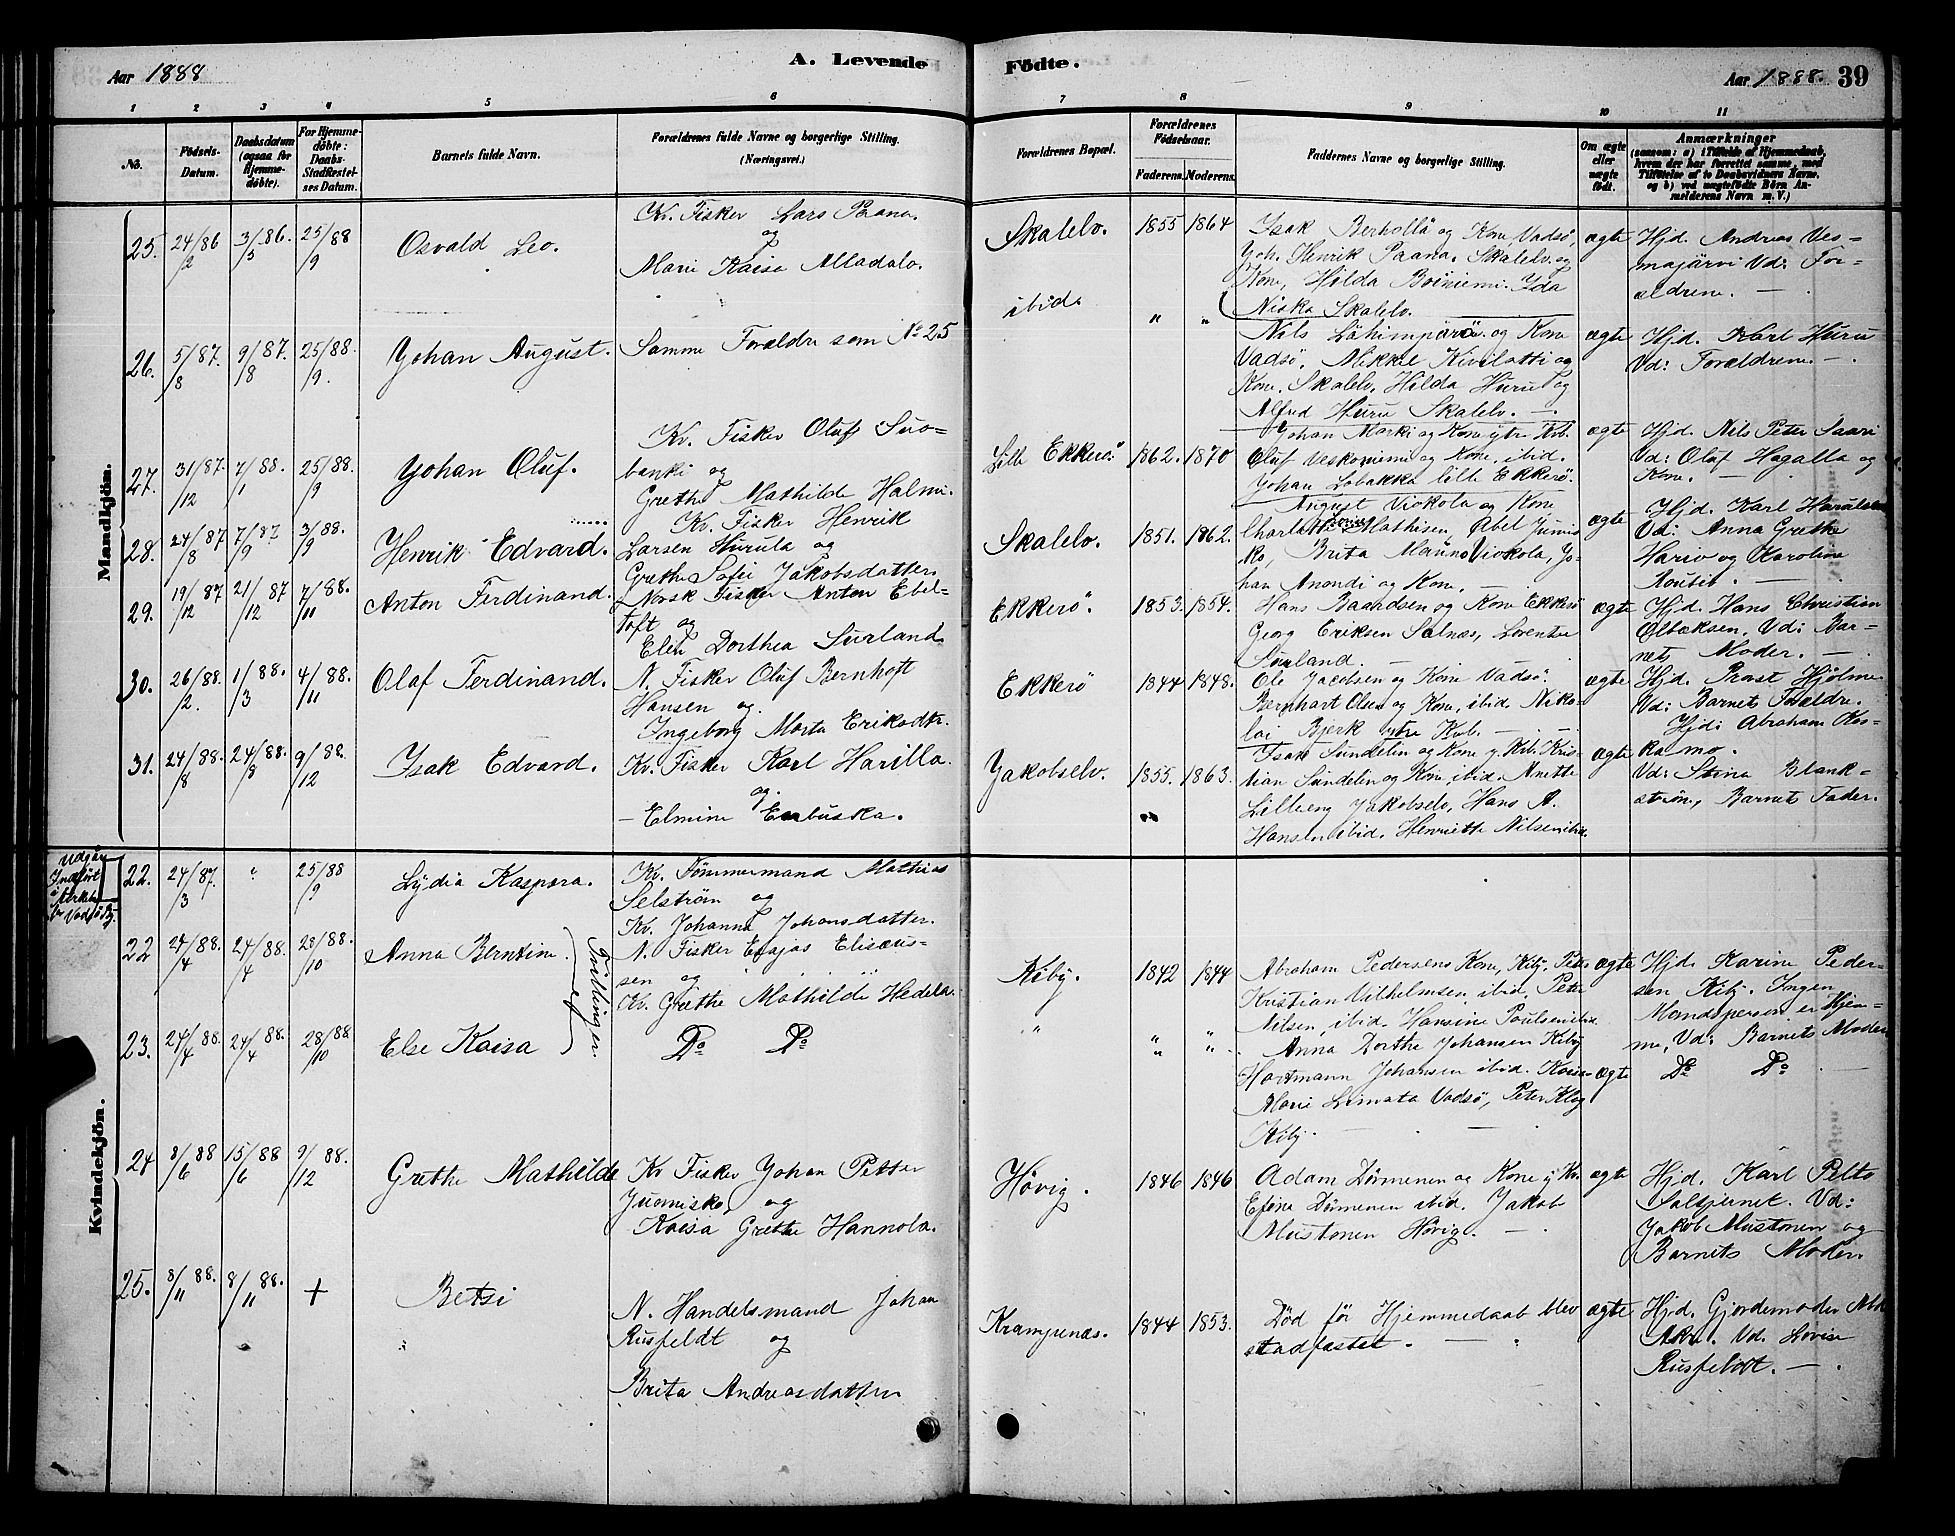 Aar 1888
A. Levende
1 2 3 4 5 6
No.
Födsels-
Datum.
Daabsdatum
(ogsaa for
Hjemme-
döbte).
For Hjemme-
döbte:
Daabs-
Stadfæstel-
ses Datum.
Barnets fulde Navn.
Forældrenes fulde Navne og borgerlige Stilling.
(Næringsvei.)
Mandkjön.
25. 24/2 86 3/5 86. 25/9 88 Osvald Leo.
Kv. Fisker Lars Paana.
og
Marie Kaisa Alladalo.
26. 5/8 87. 9/8 87. 25/9 88. Johan August.
Samme Forældre som No 25
27. 31/12 87. 7/1 88. 25/9 88. Johan Oluf.
Kv. Fisker Oluf Suo-
banki og
Grethe Mathilde Halmi.
28. 24/8 87 7/9 87 3/9 88. Henrik Edvard.
Kv. Fisker Henrik
Larsen Hurula og
Grethe Sofie Jakobsdatter.
29. 19/12 87 21/12 87 7/11 88. Anton Ferdinand.
Norsk Fisker Anton Ebel-
toft og
Elen Dorthea Surland
30. 26/2 88. 1/3 88. 4/11 88. Olaf Ferdinand.
N. Fisker Oluf Bernhoft
Hansen og
Ingeborg Marta Eriksdtr.
31. 24/8 88. 24/8 88. 9/12 88. Isak Edvard.
Kv. Fisker Karl Harilla.
og
Elmine Embuska.
Kvindekjön.
Udgår
Indført
22. 24/3 87. " 25/9 88 Lydia Kaspara.
Kv. Tömmermand Mathias
Selström og
Kv. Johanna Johansdatter.
22 24/4 88. 24/4 88. 28/10 88. Anna Berntine.
Tvillinger
af
N. Fisker Esajas Elisæus-
sen og
Kv. Grethe Mathilde Hedela.
23. 24/4 88. 24/4 88. 28/10 88 Else Kaisa
Do Do
24 8/6 88 15/6 88 9/12 88. Grethe Mathilde
Kv Fisker Johan Petter
Juomisko, og
Kaisa Grethe Hannola.
25. 8/11 88. 8/11 88. + Betsi
N. Handelsmand Johan
Rusfeldt og
Brita Andreasdatter
Födte.
Aar 1888. 39
7 8 9 10 11
Forældrenes Bopæl.
Forældrenes
Födselsaar.
Faderens. Moderens.
Faddernes Navne og borgerlige Stilling.
Om ægte
eller
uægte
födt.
Anmærkninger
(saasom: a) i Tilfælde af Hjemmedaab,
hvem der har forrettet samme, med
Tilföielse af to Daabsvidners Navne,
og b) ved uægtefödte Börn An-
melderens Navn m. V.)
Skalelv. 1855 1864
Isak Berhollå og Kone, Vadsö,
Joh. Henrik Paana, Skalelv. og
Kone, Hilda Boiniemi. Ida
Niska Skalelv.
ægte
Hjd. Andreas Ves-
majärvi Vd: For-
ældrene. —
ibid. " "
Nils Lähimpärä og Kone
Vadsö, Mikkel Kivilatti og
Kone, Skalelv, Hilda Huru og
Alfred Huru Skalelv. —
ægte
Hjd. Karl Huru
Vd: Forældrene. —
Lille Ekkerö. 1862. 1870
Johan Marki og Kone ytre Kib.
Oluf Veskoniemi og Kone, ibid.
Johan Lobakka lille Ekkerö.
ægte
Hjd. Nils Peter Saari
Vd: Oluf Hagalla og
Kone. —
Skalelv. 1851. 1862.
August Viokola og Kone
Charlotte Mathisen, Abel Jumis-
ko, Brita Viokola, Jo-
han Anondi og Kone.
ægte
Hjd. Karl
Vd: Anna Grethe
Hario og Karoline
Ekkerö. 1853. 1854.
Hans Baardsen og Kone Ekkerö
Georg Eriksen Salnæs, Lorentse
Surland. —
ægte
Hjd. Hans Christian
Olbæksen. Vd: Bar-
nets Moder. —
Ekkerö 1844 1848.
Ole Jacobsen og Kone Vadsö.
Bernhart Olsen og Kone, ibid, Niko-
lai Bjerk ytre Kib. —
ægte
Hjd. Prost Hjölme
Vd: Barnets Forældre.
Jakobselv. 1855. 1863.
Isak Sundelin og Kone y. Kib. Kris-
tian Sundelin og Kone ibid. Anette
Lilleeng Jakobselv, Hans A.
Hansen ibid. Henriette Nilsen ibid.
ægte
Hjd: Abraham Kos-
kamo.
Vd: Stina Blank-
ström, Barnets Fader.
Kiby. 1842 1844
Abraham Pedersens Kone, Kiby, Peter
Kristian Vilhelmsen, ibid, Peter
Nilsen, ibid. Hansine Poulsen ibid.
ægte
Hjd. Karine Peder-
sen Kiby. Ingen
Mandsperson er Hjem-
me, Vd: Barnets Moder
" " "
Anna Dorthe Johansen Kiby
Hartmann Johansen ibid. Karen
Marie Limata Vadsö, Peter Klog
Kiby. —
ægte Do Do
Hövig. 1846 1846
Adam Dörmenen og Kone y. Kb.
Efina Dörmenen ibid. Jakob
Mustonen Hövig. —
ægte
Hjd. Karl Pelto
Saltjernet. Vd:
Jakob Mustonen og
Barnets Moder.
Krampenæs. 1844 1853.
Död för Hjemmedaab blev
stadfæstet. —
ægte
Hjd. Gjordemoder
Vd. Lovise
Rusfeldt. —